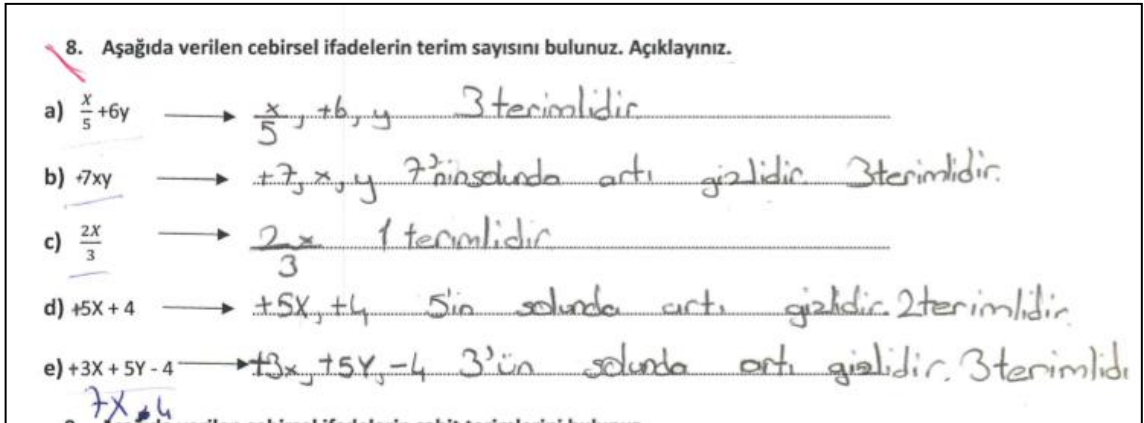 8. Aşağıda verilen cebirsel ifadelerin terim sayısını bulunuz. Açıklayınız.
a) x/5 +6y → x/5, +6, y 3 terimlidir.
b) +7xy → +7, x, y 7'nin solunda artı gizlidir. 3 terimlidir.
c) 2X/3 → 2x/3 1 terimlidir
d) +5X + 4 → +5X, +4 5'in solunda artı gizlidir. 2 terimlidir.
e) +3X + 5Y - 4 → +3x, +5Y, -4 3'ün solunda artı gizlidir. 3 terimlidi
7X 4
verilen cebirsel ifadelerin sabit terimlerini bulunuz.